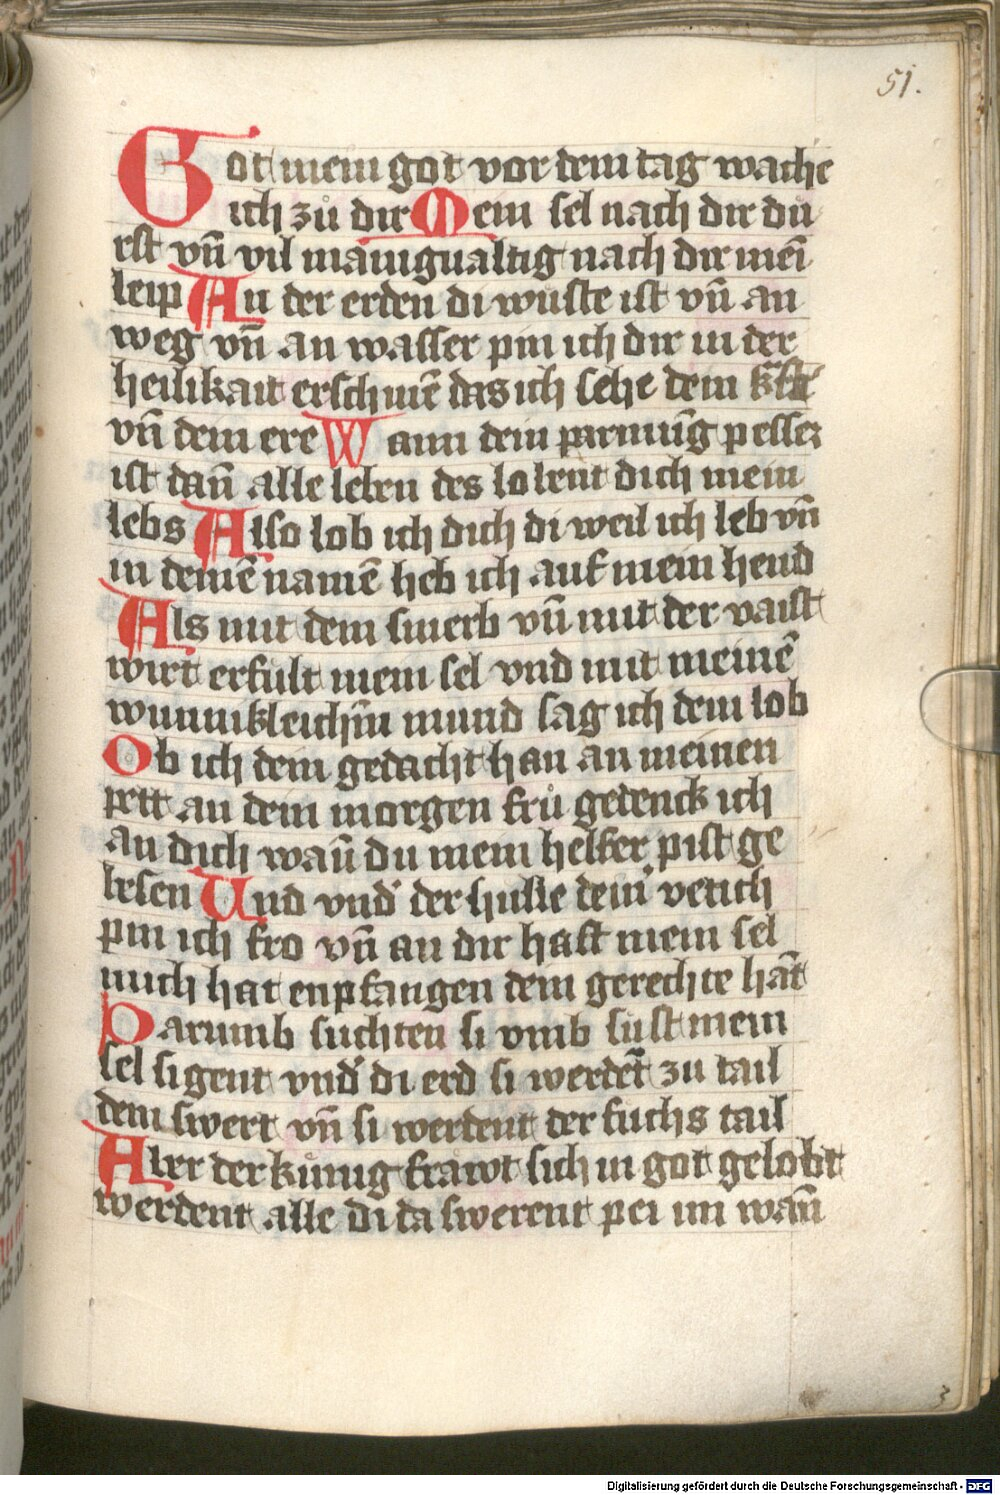 51.
Got mein got vor dem tag wache
ich zů dir Mein sel nach dir dů
rst vn̄ vil manigualtig nach dir mei̅
leip An der erden di wuͤste ist vn̄ an
weg vn̄ an wasser pin ich dir in der
heilikait erschine̅ das ich sehe dein
vn̄ dein ere Wann dein parmu̅g pesser
ist dan̄ alle leben des lobent dich mein
lebs Also lob ich dich di weil ich leb vn̄
in deine̅ name̅ heb ich auf mein hend
Als mit dem smerb vn̄ mit der vaist
wirt erfult mein sel vnd mit meine̅
wunnikleiche̅m mund sag ich dein lob
Ob ich dein gedacht han an meinen
pett an dem morgen frů gedenck ich
an dich wan̄ du mein helfer pist ge
besen Und vnd' der hulle dein' vetich
pin ich fro vn̄ an dir haft mein sel
mich hat enpfangen dein gerechte ha̅t
Parumb suchten si vmb suͤst mein
sel si gent vnd' di erd si werde̅t zu tail
dem swert vn̄ si werdent der fuchs tail
Aber der kuͤnig fraͤwt sich in got gelobt
werdent alle di da swerent pei im wan̄
Digitalisierung gefördert durch die Deutsche Forschungsgemeinschaft - DFG